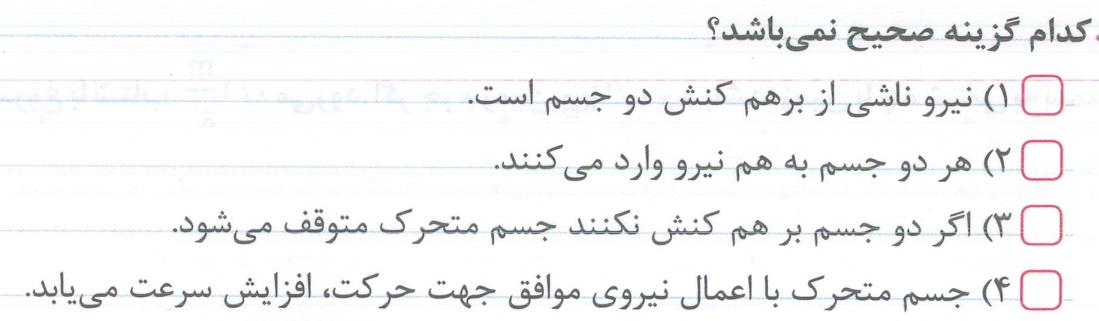 کدام گزینه صحیح نمی‌باشد؟
۱) نیرو ناشی از برهم کنش دو جسم است.
۲) هر دو جسم به هم نیرو وارد می‌کنند.
۳) اگر دو جسم بر هم کنش نکنند جسم متحرک متوقف می‌شود.
۴) جسم متحرک با اعمال نیروی موافق جهت حرکت، افزایش سرعت می‌یابد.